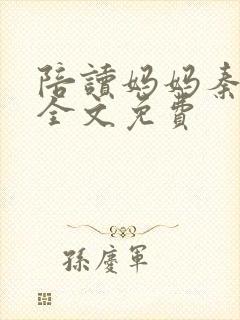 陪讀媽媽秦
全文免費
孫慶軍